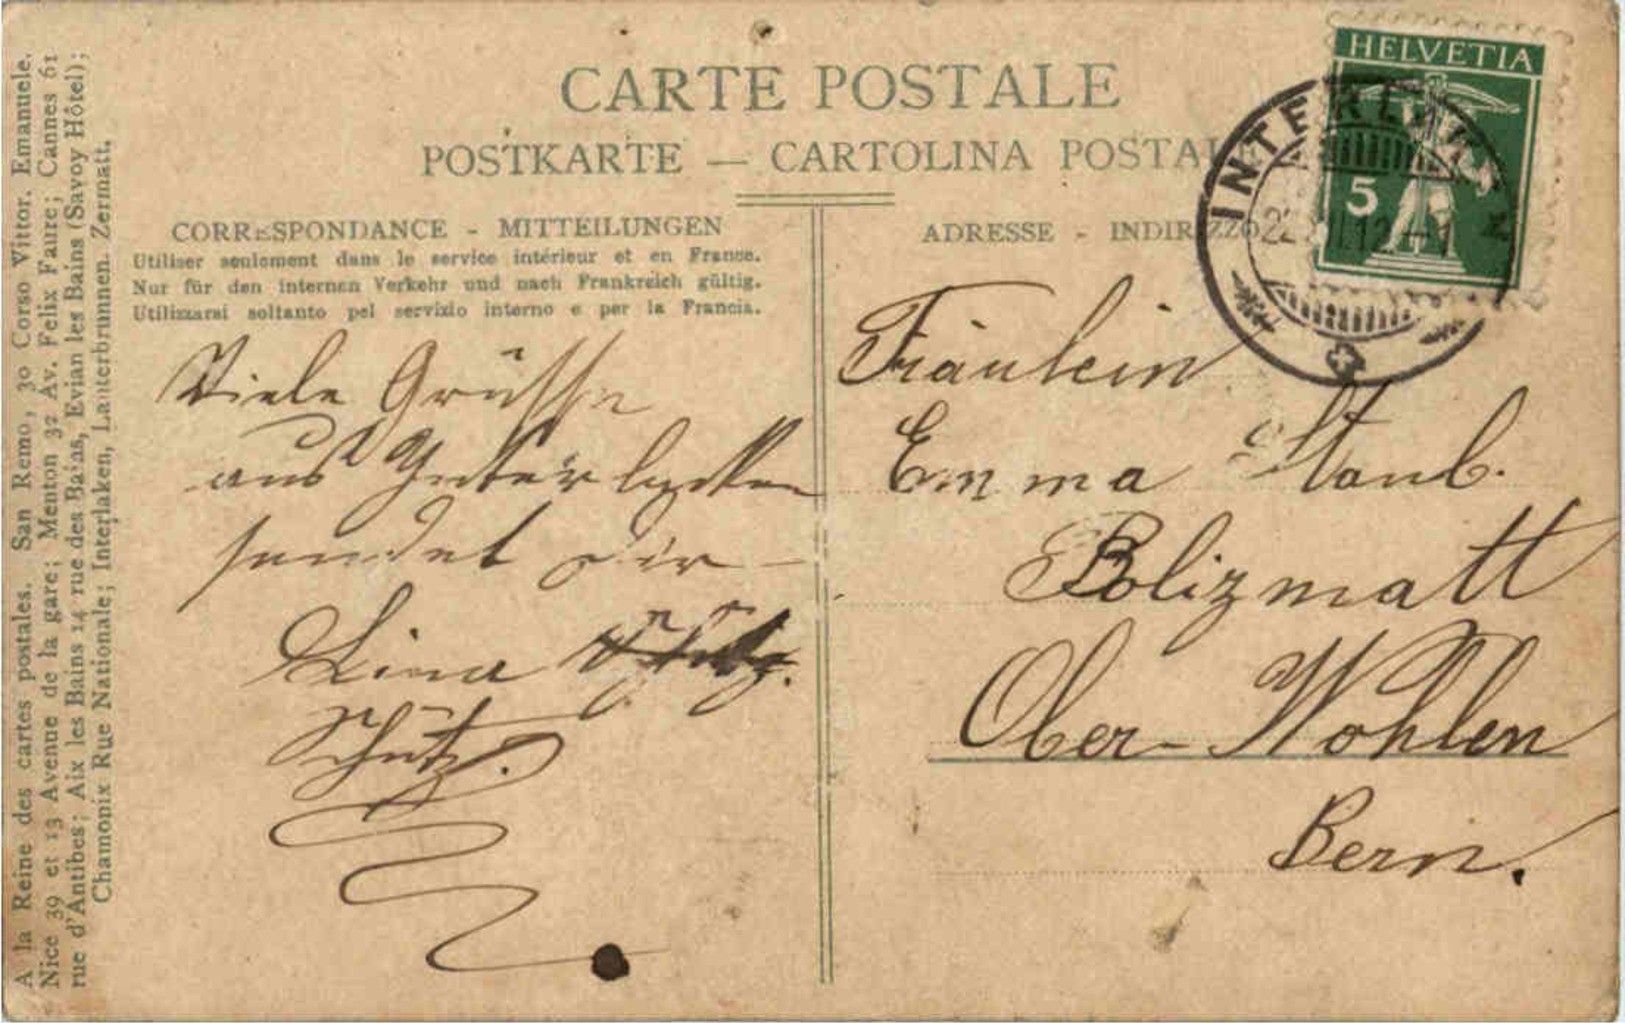 A la Reine des cartes postales. San Remo, 30 Corso Vittor. Emanuele.
Nice 39 et 13 Avenue de la gare; Menton 32 Av. Felix Faure; Cannes 61
rue d'Antibes; Aix les Bains 14 rue des Bains, Evian les Bains (Savoy Hôtel);
Chamonix Rue Nationale; Interlaken, Lauterbrunnen. Zermatt.
CARTE POSTALE
POSTKARTE — CARTOLINA POSTALE
CORRESPONDANCE - MITTEILUNGEN
Utiliser seulement dans le service intérieur et en France.
Nur für den internen Verkehr und nach Frankreich gültig.
Utilizzarsi soltanto pel servizio interno e per la Francia.
Viele Grüsse
aus Interlacken
sendet dir
Lina
Schütz.
ADRESSE - INDIRIZZO
HELVETIA
5
INTERLAKEN
Fräulein
Emma Staub.
Bolizmatt
Ober-Wohlen
Bern.